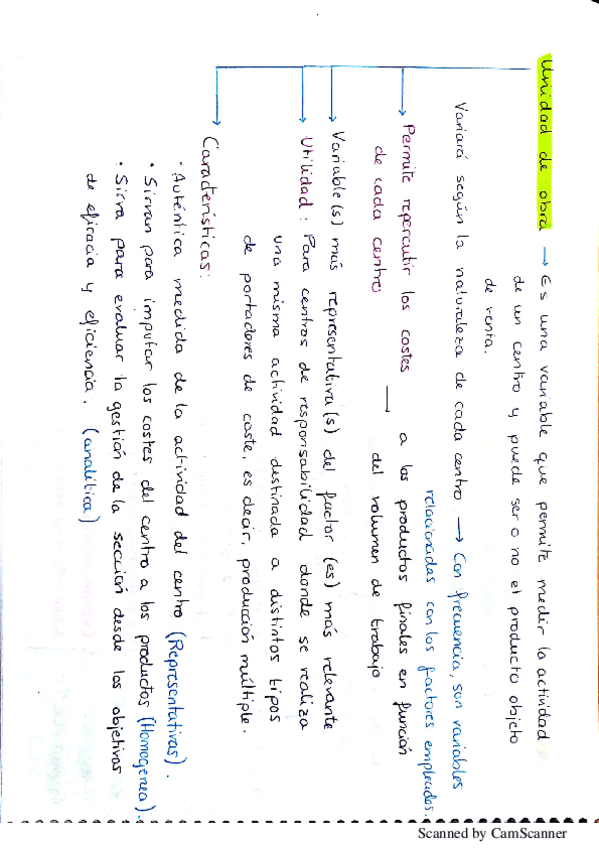 Unidad de obra → Es una variable que permite medir la actividad
de un centro y puede ser o no el producto objeto
de venta.
Variará según la naturaleza de cada centro → Con frecuencia, son variables
relacionadas con los factores empleados.
Permite repercutir los costes — a los productos finales en función
de cada centro del volumen de trabajo
Variable(s) más representativa(s) del factor (es) más relevante
Utilidad: Para centros de responsabilidad donde se realiza
una misma actividad destinada a distintos tipos
de portadores de coste, es decir, producción múltiple.
Características:
· Auténtica medida de la actividad del centro (Representativas).
· Sirvan para imputar los costes del centro a los productos (Homogenea).
· Sirva para evaluar la gestión de la sección desde los objetivos
de eficacia y eficiencia. (analítica)
Scanned by CamScanner